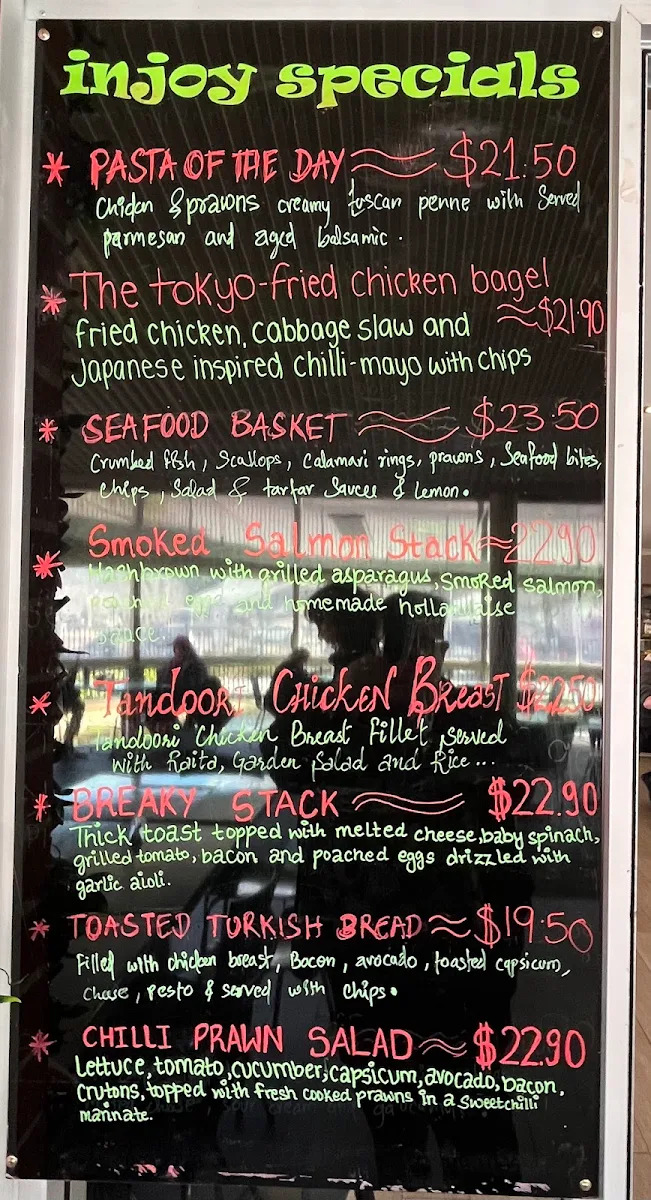 injoy specials
* PASTA OF THE DAY $21.50
Chicken & prawns creamy tuscan penne with Served
parmesan and aged balsamic.
* The tokyo-fried chicken bagel
$21.90
fried chicken, cabbage slaw and
Japanese inspired chilli-mayo with chips
* SEAFOOD BASKET $23.50
Crumbed fish, Scallops, Calamari rings, prawns, Seafood bites,
chips, Salad & tartar Sauce & Lemon.
* Smoked Salmon Stack 22.90
Hashbrown with grilled asparagus, smoked salmon,
poached eggs and homemade hollandaise
sauce.
* Tandoori Chicken Breast $22.50
Tandoori Chicken Breast Fillet Served
With Raita, Garden Salad and Rice...
* BREAKY STACK $22.90
Thick toast topped with melted cheese, baby spinach,
grilled tomato, bacon and poached eggs drizzled with
garlic aioli.
* TOASTED TURKISH BREAD $19.50
Filled with chicken breast, Bacon, avocado, toasted capsicum,
Chese, pesto & served with chips.
* CHILLI PRAWN SALAD $22.90
Lettuce, tomato, cucumber, capsicum, avocado, bacon,
crutons, topped with fresh cooked prawns in a sweetchilli
marinate.